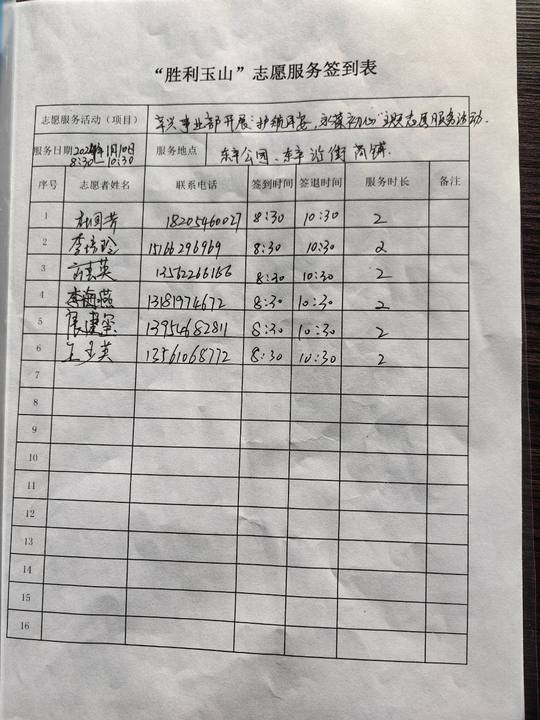 “胜利玉山”志愿服务签到表
志愿服务活动（项目） 辛兴事业部开展“护航平安，永葆初心”主题志愿服务活动.
服务日期 2024年1月10日 8:30—10:30 服务地点 东辛公园、东辛沿街商铺
序号 志愿者姓名 联系电话 签到时间 签退时间 服务时长 备注
1 18205460027 8:30 10:30 2
2 李培玲 15166296969 8:30 10:30 2
3 13562266166 8:30 10:30 2
4 李海燕 13181974672 8:30 10:30 2
5 张建玺 13954682811 8:30 10:30 2
6 王玉英 13561068772 8:30 10:30 2
7
8
9
10
11
12
13
14
15
16